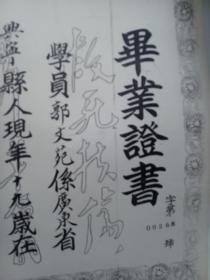 畢業證書
字第
00268
號
救死扶傷
學員郭文苑係廣東省
興寧縣人現年十九歲在